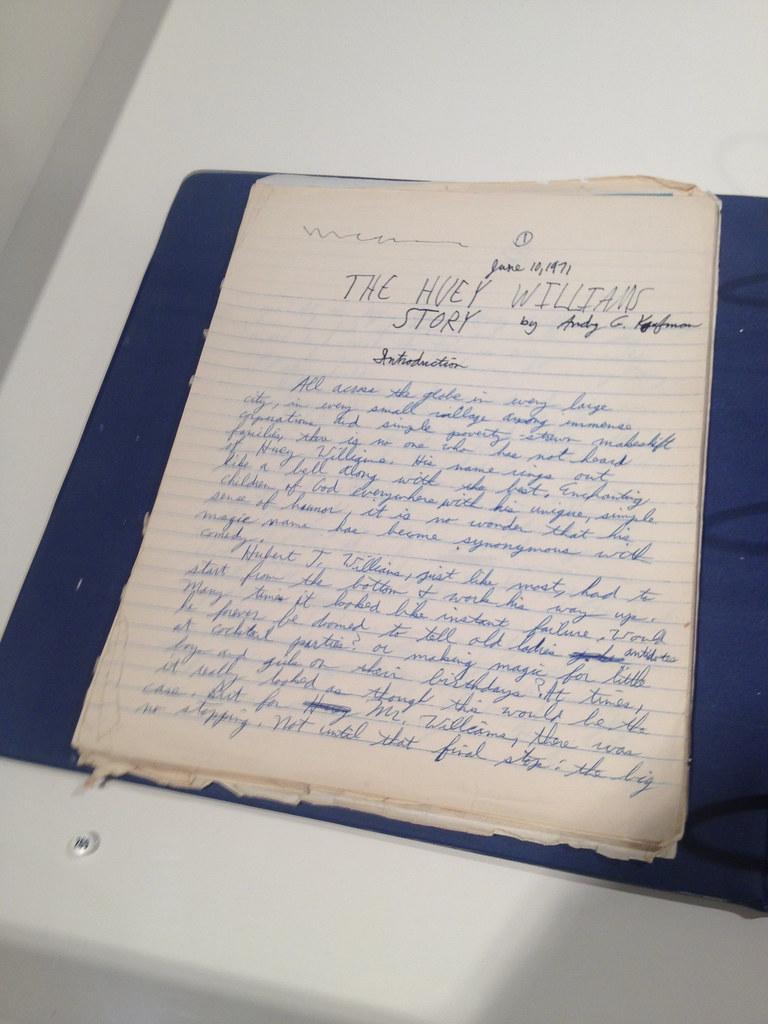 ①
June 10, 1971
THE HUEY WILLIAMS
STORY by Andy G. Kaufman
Introduction
All across the globe in every large
city, in every small village among immense
corporations and simple poverty strewn makeshift
families, there is no one who has not heard
of Huey Williams. His name rings out
like a bell along with the best. Enchanting
children of God everywhere with his unique, simple
sense of humor, it is no wonder that his
magic name has become synonymous with
comedy.
Hubert T. Williams, just like most, had to
start from the bottom & work his way up.
Many times it looked like instant failure. Would
he forever be doomed to tell old ladies antidotes
at cocktail parties? or making magic for little
boys and girls on their birthdays? At times,
it really looked as though this would be the
case. But for Mr. Williams, there was
no stopping. Not until that final stop: the big